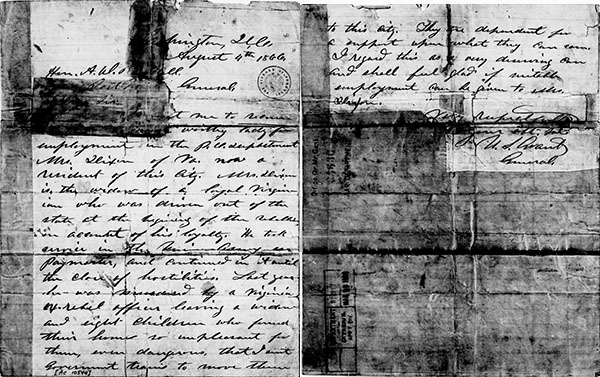 Washington, D.C.
August 4th 1866
Hon. A. W.
General
me to
worthy lady for
employment in the P.O. department
Mrs. Dixon of Va. now a
resident of this City. Mrs. Dixon
is the widow of a loyal Virgin
ian who was driven out of the
state at the begining of the rebellion
on account of his loyalty. He took
service in the Union Army as
Paymaster, and continued in it until
the close of hostilities. Last year
he was murdered by a Virginia
ex-rebel officer leaving a widow
and eight children who found
their home so unpleasant for
them, even dangerous, that I sent
Government teams to move them
to this City. They are dependent for
a support upon what they can earn.
I regard this as a very deserving case
and shall feel glad if suitable
employment can be given to Mrs.
Dixon.
Very respectfully
your obt. svt.
U. S. Grant
General